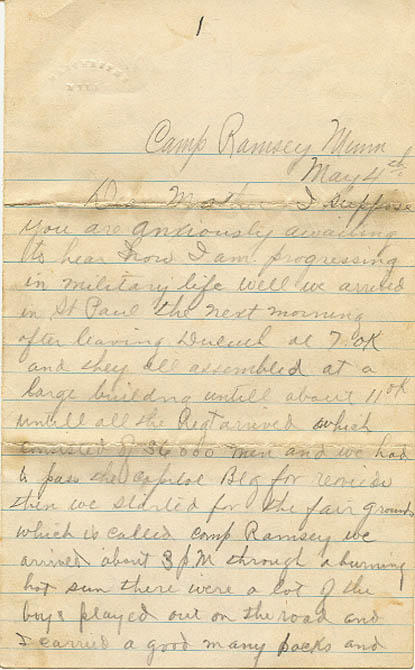 1
Camp Ramsey Minn
May 4th
Dear Mother I suppose
you are anxiously awaiting
to hear how I am progressing
in military life well we arrived
in St Paul the next morning
after leaving Duluth at 7. oK
and they all assembled at a
large building untill about 11 oK
untill all the Regt arrived which
consisted of 36000 men and we had
to pass the capitol Blg for
then we started for the fair grounds
which is called camp Ramsey we
arrived about 3 p M through a burning
hot sun there were a lot of the
boys played out on the road and
I carried a good many packs and